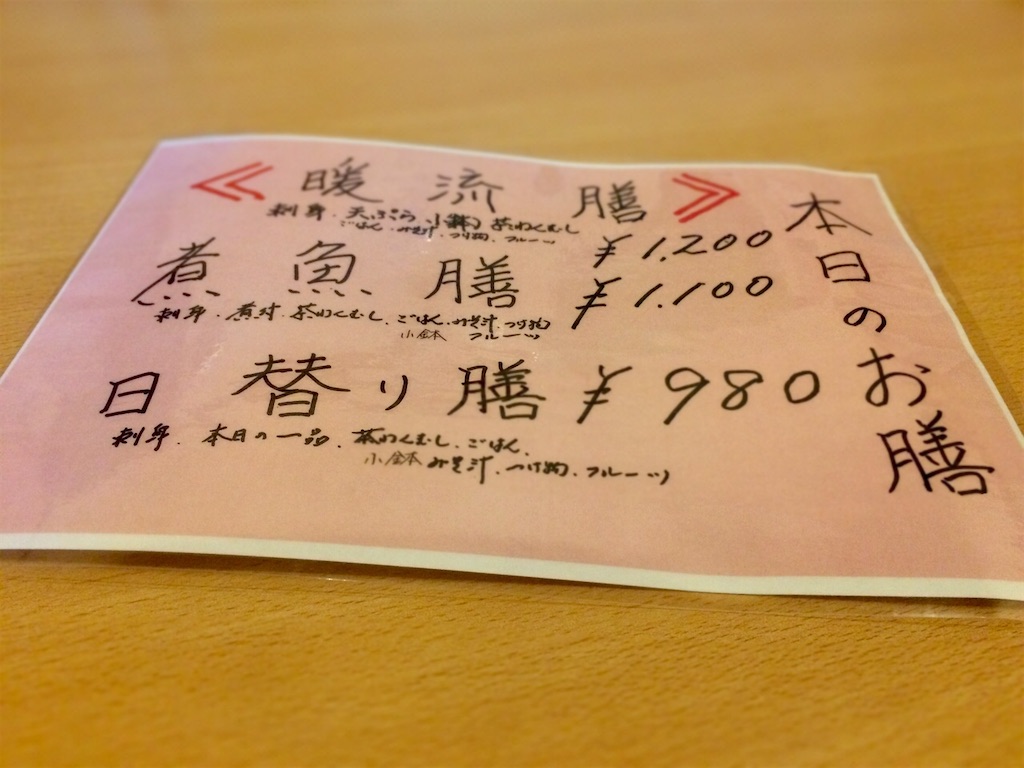 本日のお膳
≪ 暖流膳 ≫
刺身、天ぷら 小鉢 茶わんむし
ごはん、みそ汁、つけ物、フルーツ
¥1,200
煮魚膳 ¥1,100
刺身、煮付、茶わんむし、ごはん、みそ汁、つけ物
小鉢 フルーツ
日替り膳 ¥980
刺身、本日の一品、茶わんむし、ごはん、
小鉢 みそ汁、つけ物、フルーツ